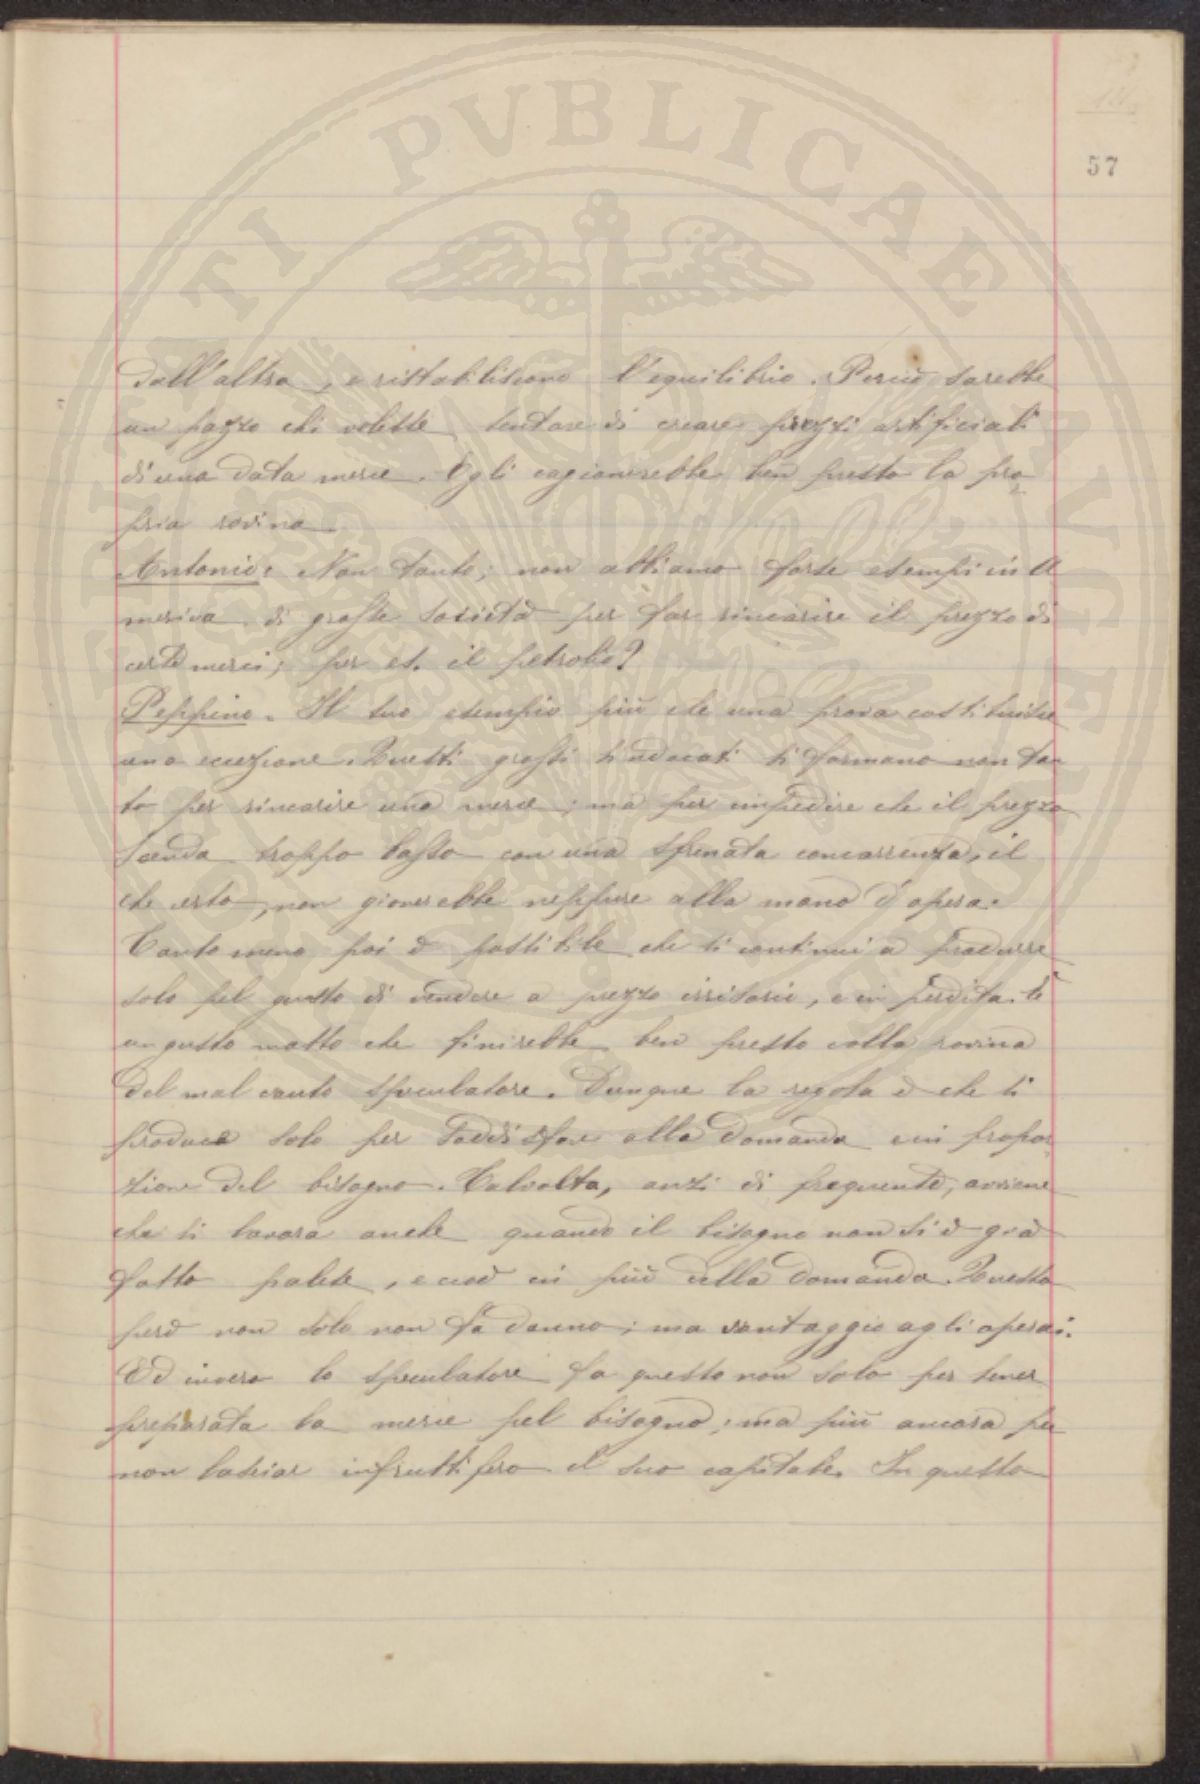 57
dall'altra, e ristabiliscono l'equilibrio. Perciò sarebbe
un pazzo chi volesse tentare di creare prezzi artificiali
di una data merce. Egli cagionerebbe ben presto la pro
pria rovina.
Antonio: Non tanto; non abbiamo forse esempi in A
merica di grosse società per far rincarire il prezzo di
certe merci; per es. il petrolio?
Peppino. Il tuo esempio più che una prova costituisce
una eccezione. Questi grossi sindacati si formano non tan
to per rincarire una merce; ma per impedire che il prezzo
scenda troppo basso con una sfrenata concorrenza, il
che certo, non gioverebbe neppure alla mano d'opera.
Tanto meno poi è possibile che si continui a produrre
solo pel gusto di vendere a prezzo irrisorio, e in perdita. È
un gusto matto che finirebbe ben presto colla rovina
del mal cauto speculatore. Dunque la regola è che si
produce solo per soddisfare alla domanda e in propor
zione del bisogno. Talvolta, anzi di frequente, avviene
che si lavora anche quando il bisogno non si è già
fatto palese, e cioè in più della domanda. Questo
però non solo non fa danno; ma vantaggio agli operai.
Ed invero lo speculatore fa questo non solo per tener
preparata la merce pel bisogno; ma più ancora per
non lasciar infruttifero il suo capitale. In questo
PUBLICAE